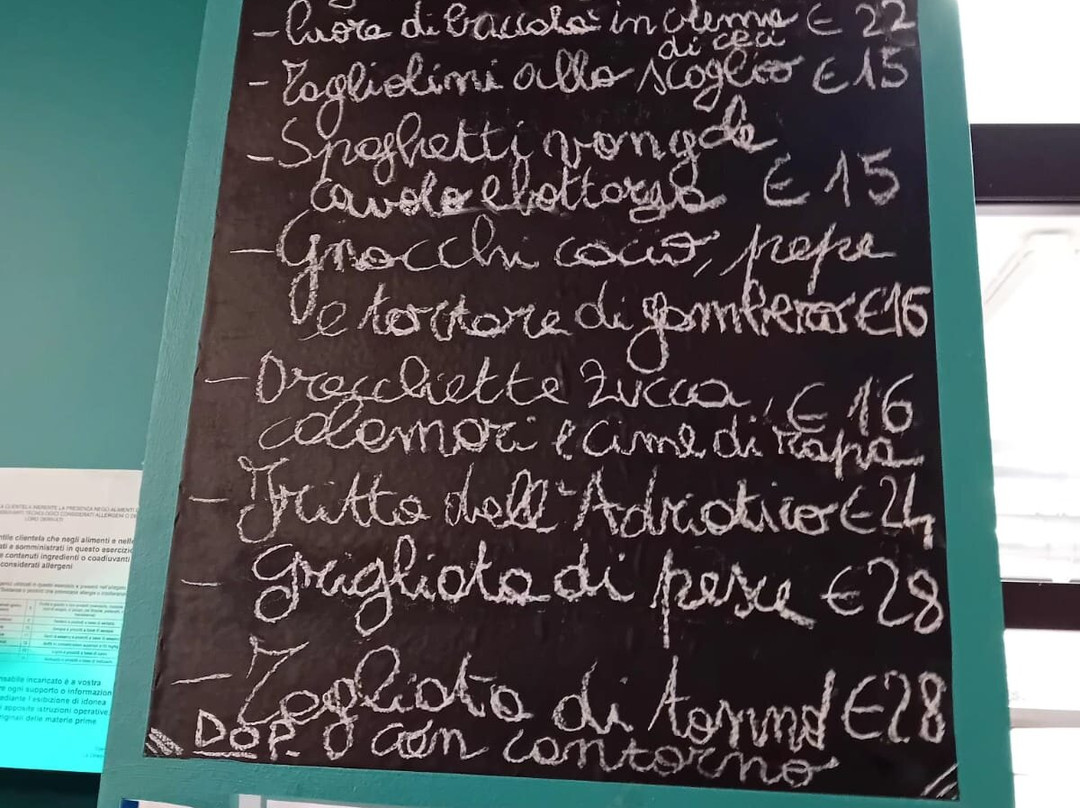 - Cuore di baccalà in crema € 22
di ceci
- Tagliolini allo scoglio € 15
- Spaghetti vongole
cavolo e bottarga € 15
- Gnocchi cacio, pepe
e tartare di gambero € 16
- Orecchiette zucca, € 16
calamari e cime di rapa
- Fritto dell'Adriatico € 24
- Grigliata di pesce € 28
- Tagliata di tonno € 28
DOP. con contorno
A CLIENTELA INERENTE LA PRESENZA NEGLI ALIMENTI
LORO DERIVATI
ntile clientela che negli alimenti e nelle
ati e somministrati in questo esercizio
e contenuti ingredienti o coadiuvanti
considerati allergeni
nsabile incaricato è a vostra
re ogni supporto o informazion
ediante l'esibizione di idonea
apposite istruzioni operative
riginali delle materie prime